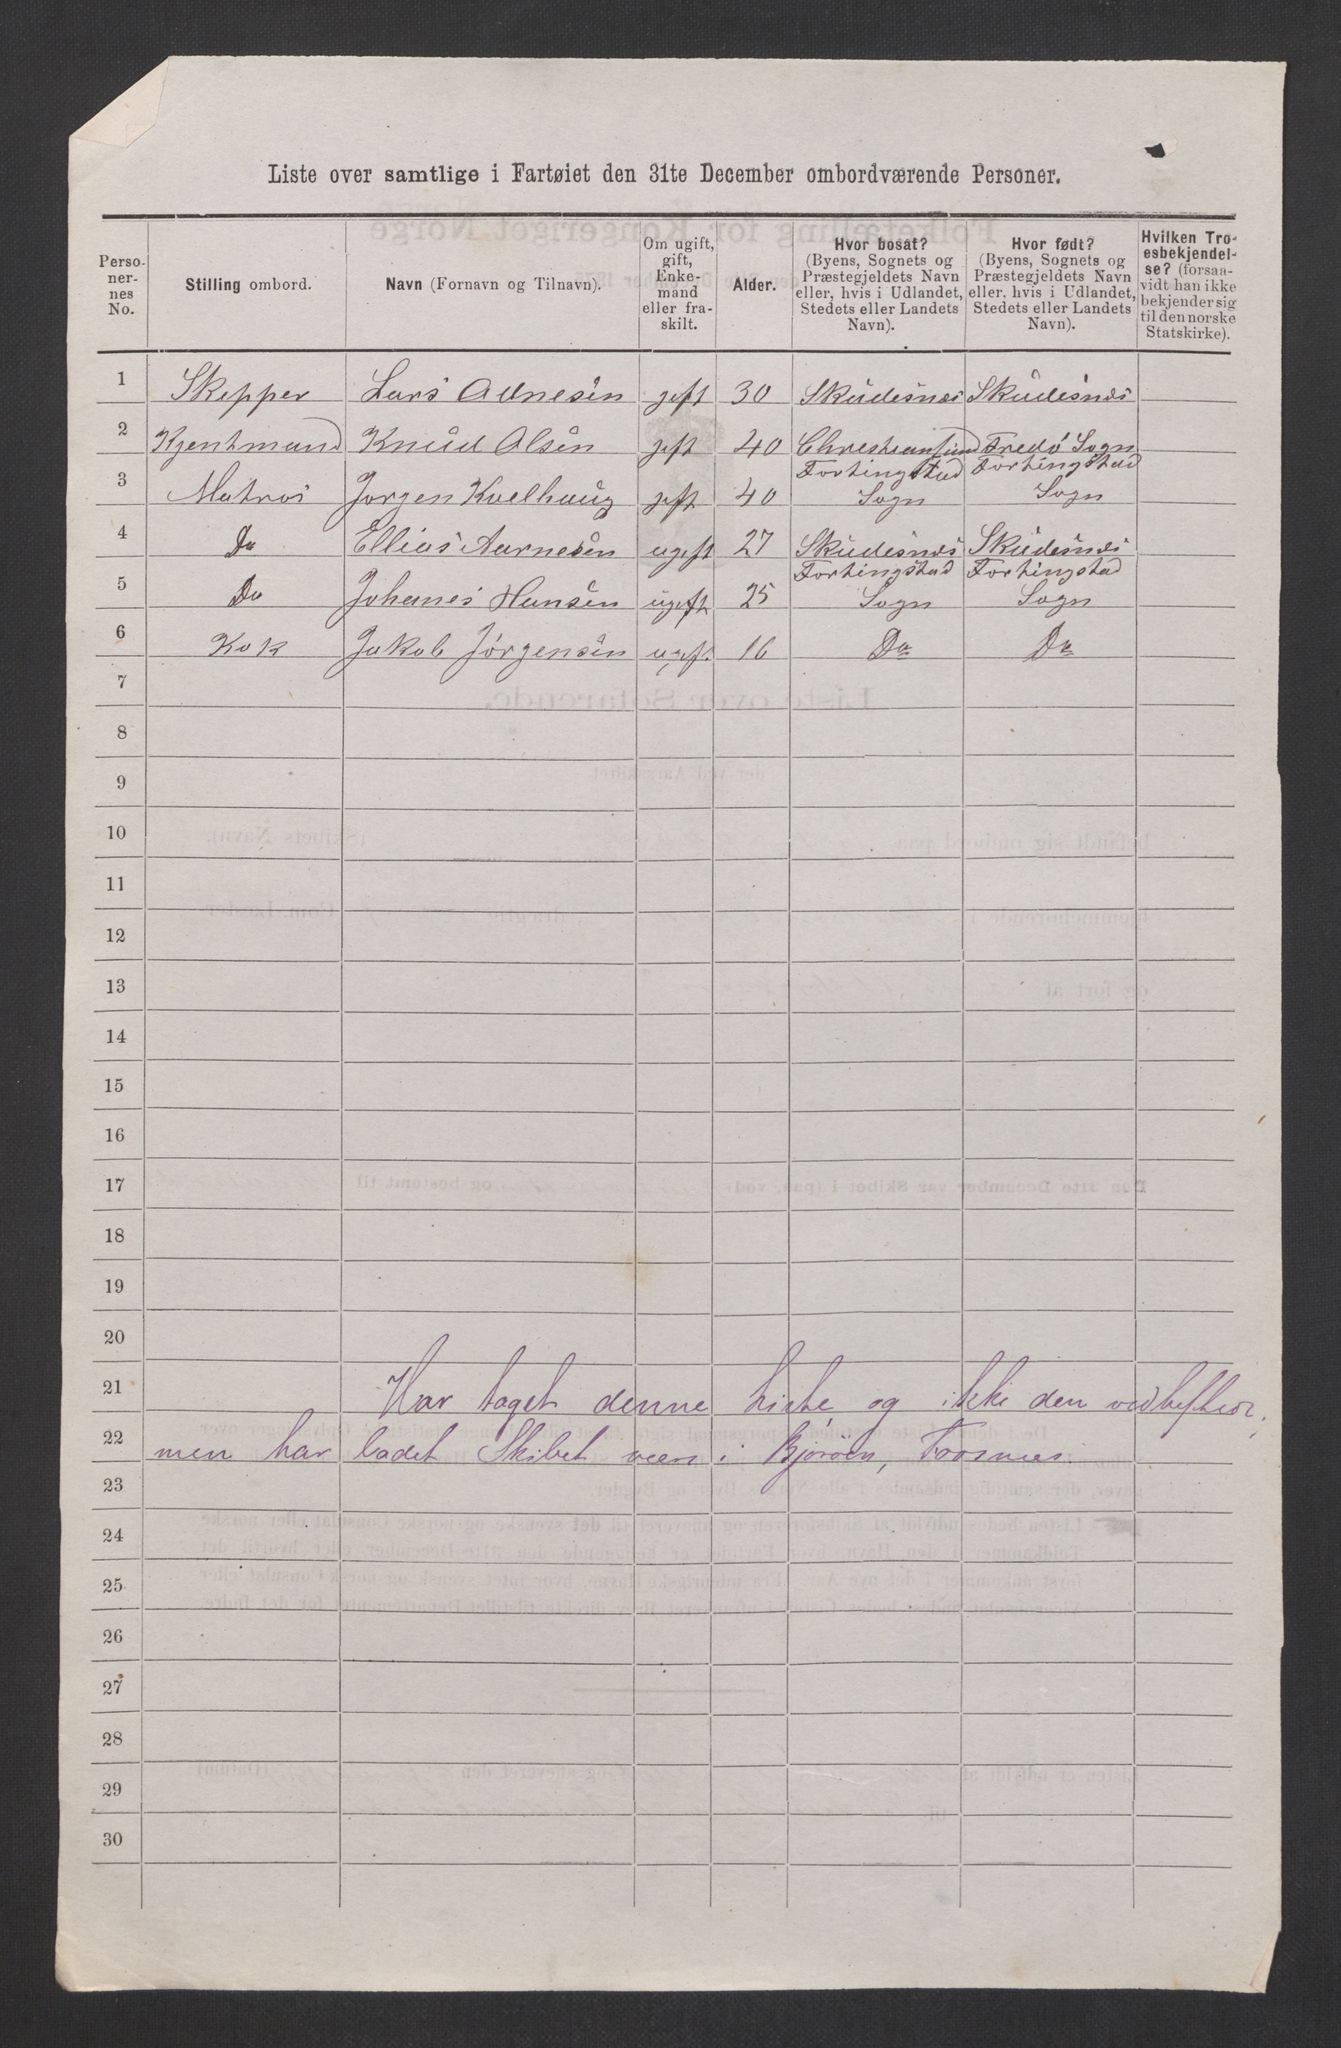 Liste over samtlige i Fartøiet den 31te December ombordværende Personer.
Perso-nernes No. | Stilling ombord. | Navn (Fornavn og Tilnavn). | Om ugift, gift, Enkemand eller fraskilt. | Alder. | Hvor bosat? (Byens, Sognets og Præstegjeldets Navn eller, hvis i Udlandet, Stedets eller Landets Navn). | Hvor født? (Byens, Sognets og Præstegjeldets Navn eller, hvis i Udlandet, Stedets eller Landets Navn). | Hvilken Troesbekjendelse? (forsaavidt han ikke bekjender sig til den norske Statskirke).
1 Skepper Lars Adnesen geft 30 Skudesnæs Skudesnæs
2 Kjentmand Knud Olsen geft 40 Chrestiansund Fredø Sogn
3 Matros Jorgen Kvelhaug geft 40 Fortingstad Sogn Fortingstad Sogn
4 Do Ellias Aarnesen ugeft 27 Skudesnæs Skudesnæs
5 Do Johanes Hansen ugeft 25 Fortingstad Sogn Fortingstad Sogn
6 Kok Jakob Jørgensen ugeft 16 Do Do
7
8
9
10
11
12
13
14
15
16
17
18
19
20
21 Har taget denne Liste og ikke den vedheftede,
22 men har ladet Skibet være i Bjørøen, Fosnæs.
23
24
25
26
27
28
29
30